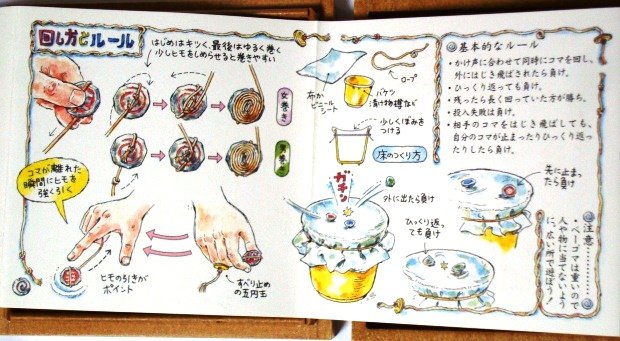 回しかたとルール
はじめはキツく、最後はゆるく巻く
少しヒモをしめらせると巻きやすい
女巻き
男巻き
コマが離れた
瞬間にヒモを
強く引く
ヒモの引きが
ポイント
すべり止め
の五円玉
布か
ビニール
シート
ロープ
バケツ
漬け物樽など
少しくぼみを
つける
床のつくり方
ガチン
外に出たら負け
ひっくり返っ
ても負け
先に止まっ
たら負け
基本的なルール
・かけ声に合わせて同時にコマを回し、
外にはじき飛ばされたら負け。
・ひっくり返っても負け。
・残ったら長く回っていた方が勝ち。
・投入失敗は負け。
・相手のコマをはじき飛ばしても、
自分のコマが止まったりひっくり返っ
たりしたら負け。
注意
・ベーゴマは重いので
人や物に当てないよう
に、広い所で遊ぼう！